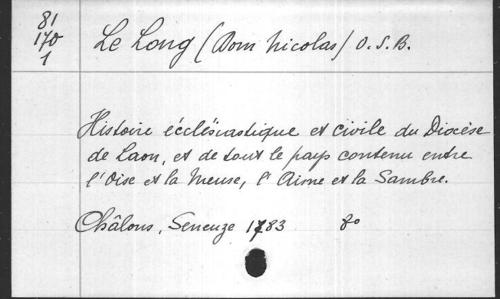 81
170
1
Le Long (Dom Nicolas) O.S.B.
Histoire écclésiastique et civile du Diocèse
de Laon, et de tout le pays contenu entre
l'Oise et la Meuse, l'Aisne et la Sambre.
Châlons, Seneuze 1783 8o